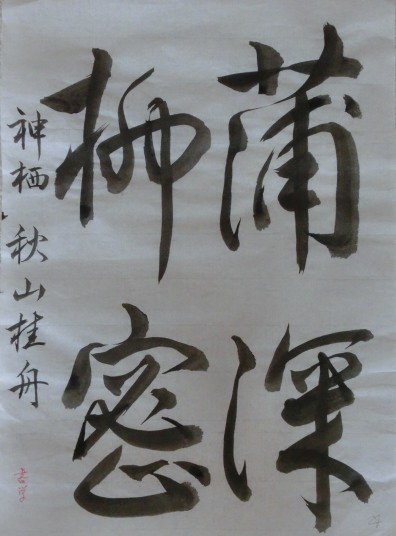 蒲深
柳密
神栖 秋山桂舟